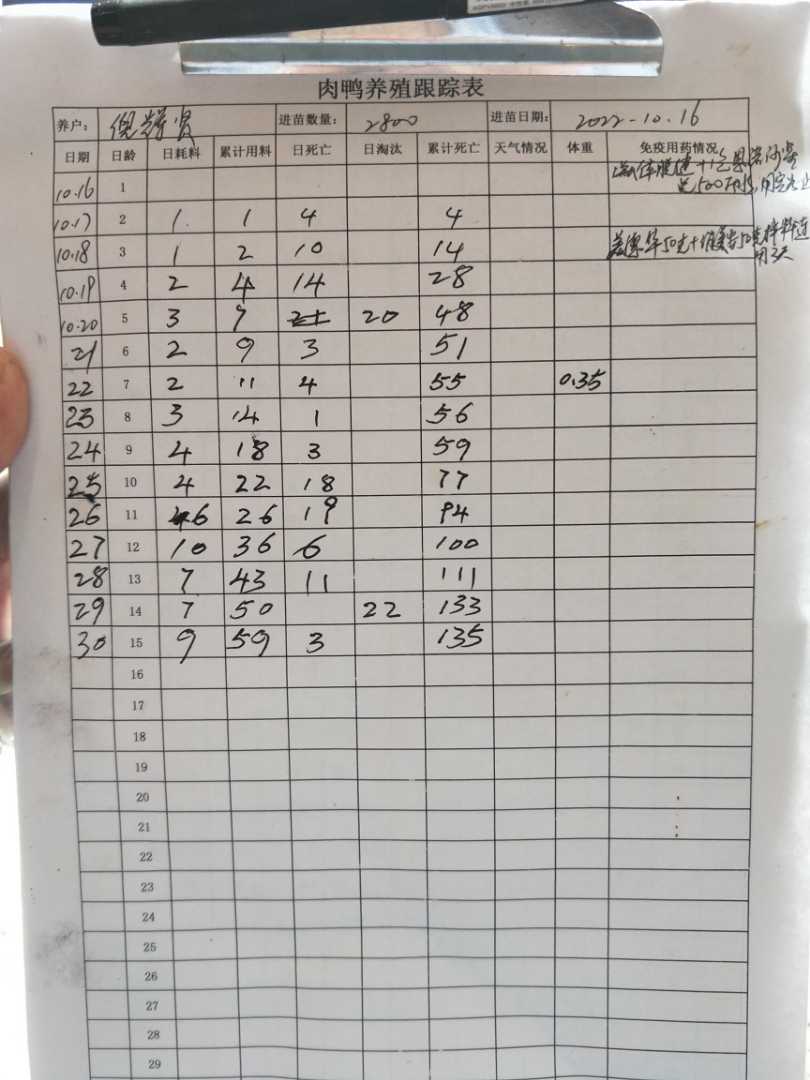 肉鸭养殖跟踪表
养户： 倪 贤 进苗数量： 2800 进苗日期： 2022-10.16
日期 日龄 日耗料 累计用料 日死亡 日淘汰 累计死亡 天气情况 体重 免疫用药情况
10.16 1
10.17 2 1 1 4 4
10.18 3 1 2 10 14
10.19 4 2 4 14 28
10.20 5 3 7 20 48
21 6 2 9 3 51
22 7 2 11 4 55 0.35
23 8 3 14 1 56
24 9 4 18 3 59
25 10 4 22 18 77
26 11 6 26 19 94
27 12 10 36 6 100
28 13 7 43 11 111
29 14 7 50 22 133
30 15 9 59 3 135
16
17
18
19
20
21
22
23
24
25
26
27
28
29